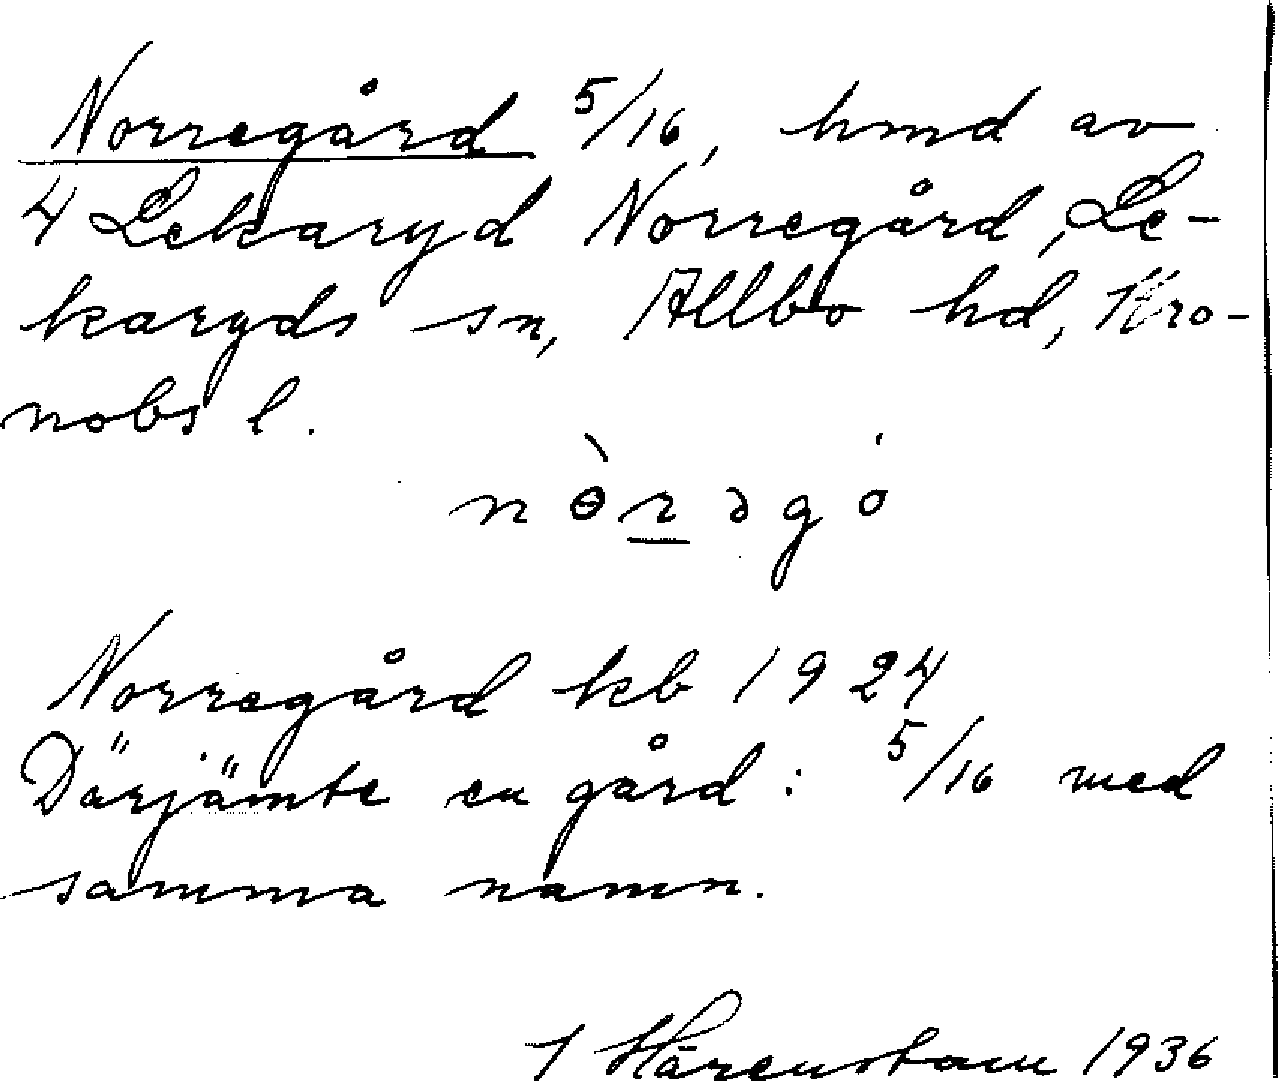 Norregård 5/16, hmd av
4 Lekaryd Norregård, Le-
karyds sn, Allbo hd, Kro-
nobs l.
nɵ̀rəgó
Norregård kb 1924
Därjämte en gård: 5/16 med
samma namn.
J Härenstam 1936